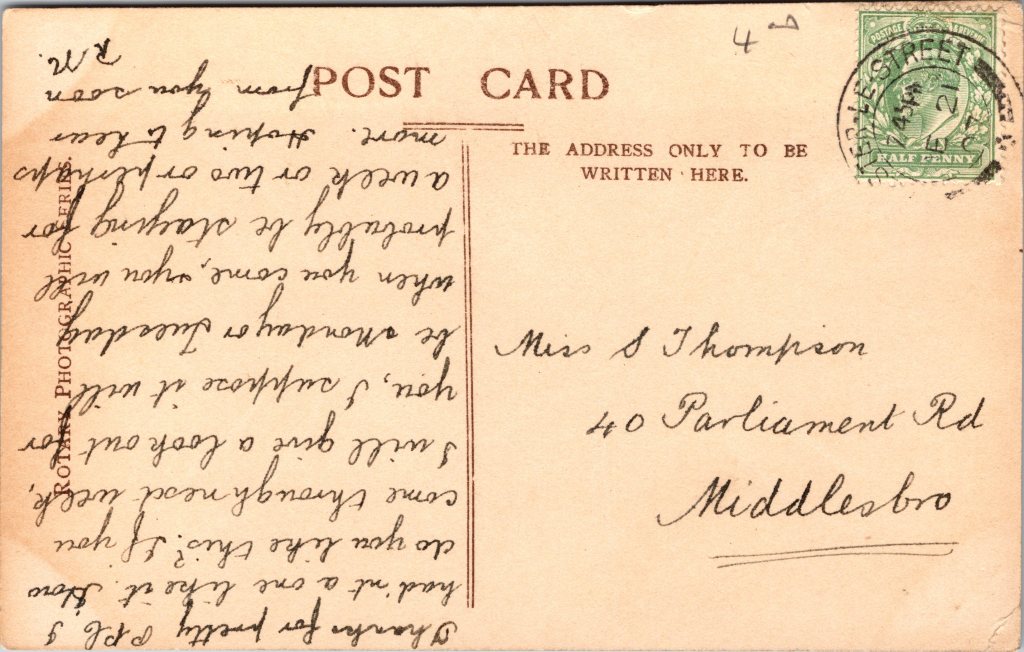 4D
POST CARD
THE ADDRESS ONLY TO BE
WRITTEN HERE.
POSTAGE REVENUE
HALF PENNY
STREET
21
ROTARY PHOTOGRAPHIC SERIES.
Miss S Thompson
40 Parliament Rd
Middlesbro
Thanks for pretty PPC I
had'nt a one like it. How
do you like this? If you
come through next week,
I will give a look out for
you, I suppose it will
be Monday or Tuesday
when you come, you will
probably be staying for
a week or two or perhaps
more. Hoping to hear
from you soon
R.M.